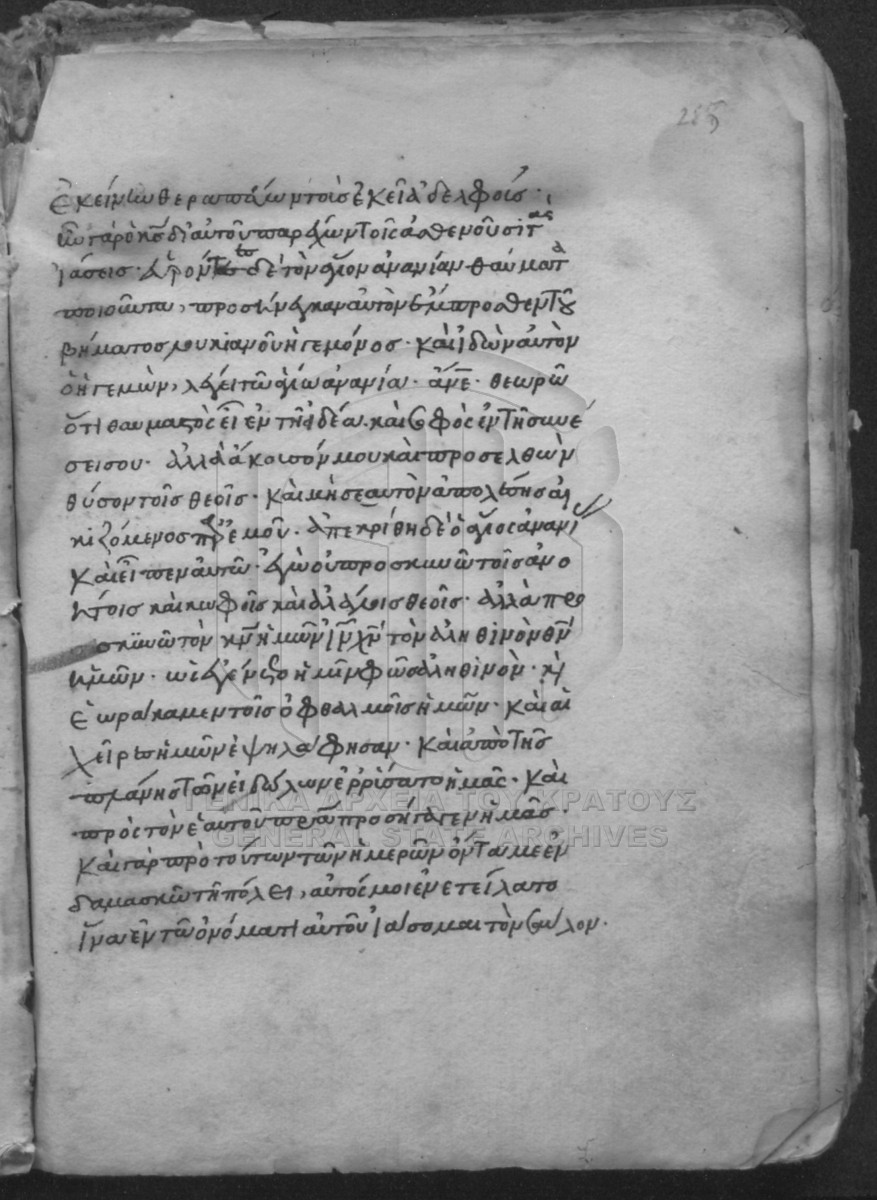 285
ἐκείνω θεραπεύων τοῖς ἐκεῖ ἀδελφοῖς·
ἦν γὰρ ὁ κ̅ς̅ δι' αὐτοῦ παρέχων τοῖς ἀσθενοῦσι τὰς
ἰάσεις· δὲ τὸν ἅγιον ἀνανίαν θαύματα
ποιοῦντα, προσήνεγκαν αὐτὸν ἔμπροσθεν τοῦ
βήματος λουκιανοῦ ἡγεμόνος· καὶ ἰδὼν αὐτὸν
ὁ ἡγεμὼν, λέγει τῶ ἁγίω ἀνανία· ἄνε̅· θεωρῶ
ὅτι θαυμαστὸς εἶ ἐν τῆ ἰδέα· καὶ σοφὸς ἐν τῆ συνέ
σει σου· ἀλλὰ ἄκουσόν μου καὶ προσελθὼν
θύσον τοῖς θεοῖς· καὶ μὴ σεαυτὸν ἀπολέσης αἰ
κιζόμενος παρ' ἐμοῦ· ἀπεκρίθη δὲ ὁ ἅγιος ἀνανί
καὶ εἶπεν αὐτῶ· ἐγὼ οὐ προσκυνῶ τοῖς ἀνο
ήτοις καὶ κωφοῖς καὶ ἀλάλοις θεοῖς· ἀλλὰ προ
σκυνῶ τὸν κ̅ν̅ ἡμῶν ἰ̅ν̅ χ̅ν̅ τὸν ἀληθινὸν θ̅ν̅
ἡμῶν· ἐγένετο ἡμῖν φῶς ἀληθινὸν·
ἑωράκαμεν τοῖς ὀφθαλμοῖς ἡμῶν· καὶ αἱ
χεῖρες ἡμῶν ἐψηλάφησαν· καὶ ἀπὸ τῆς
πλάνης τῶν εἰδώλων ἐρρύσατο ἡμᾶς· καὶ
πρὸς τὸν ἑαυτοῦ π̅ρ̅α̅ προσήγαγεν ἡμᾶς·
καὶ γὰρ πρὸ τούτων τῶν ἡμερῶν ὄντα με ἐν
δαμασκῶ τῆ πόλει, αὐτός μοι ἐνετείλατο
ἵνα ἐν τῶ ὀνόματι αὐτοῦ ἰάσομαι τὸν σαῦλον·
ΓΕΝΙΚΑ ΑΡΧΕΙΑ ΤΟΥ ΚΡΑΤΟΥΣ
GENERAL STATE ARCHIVES